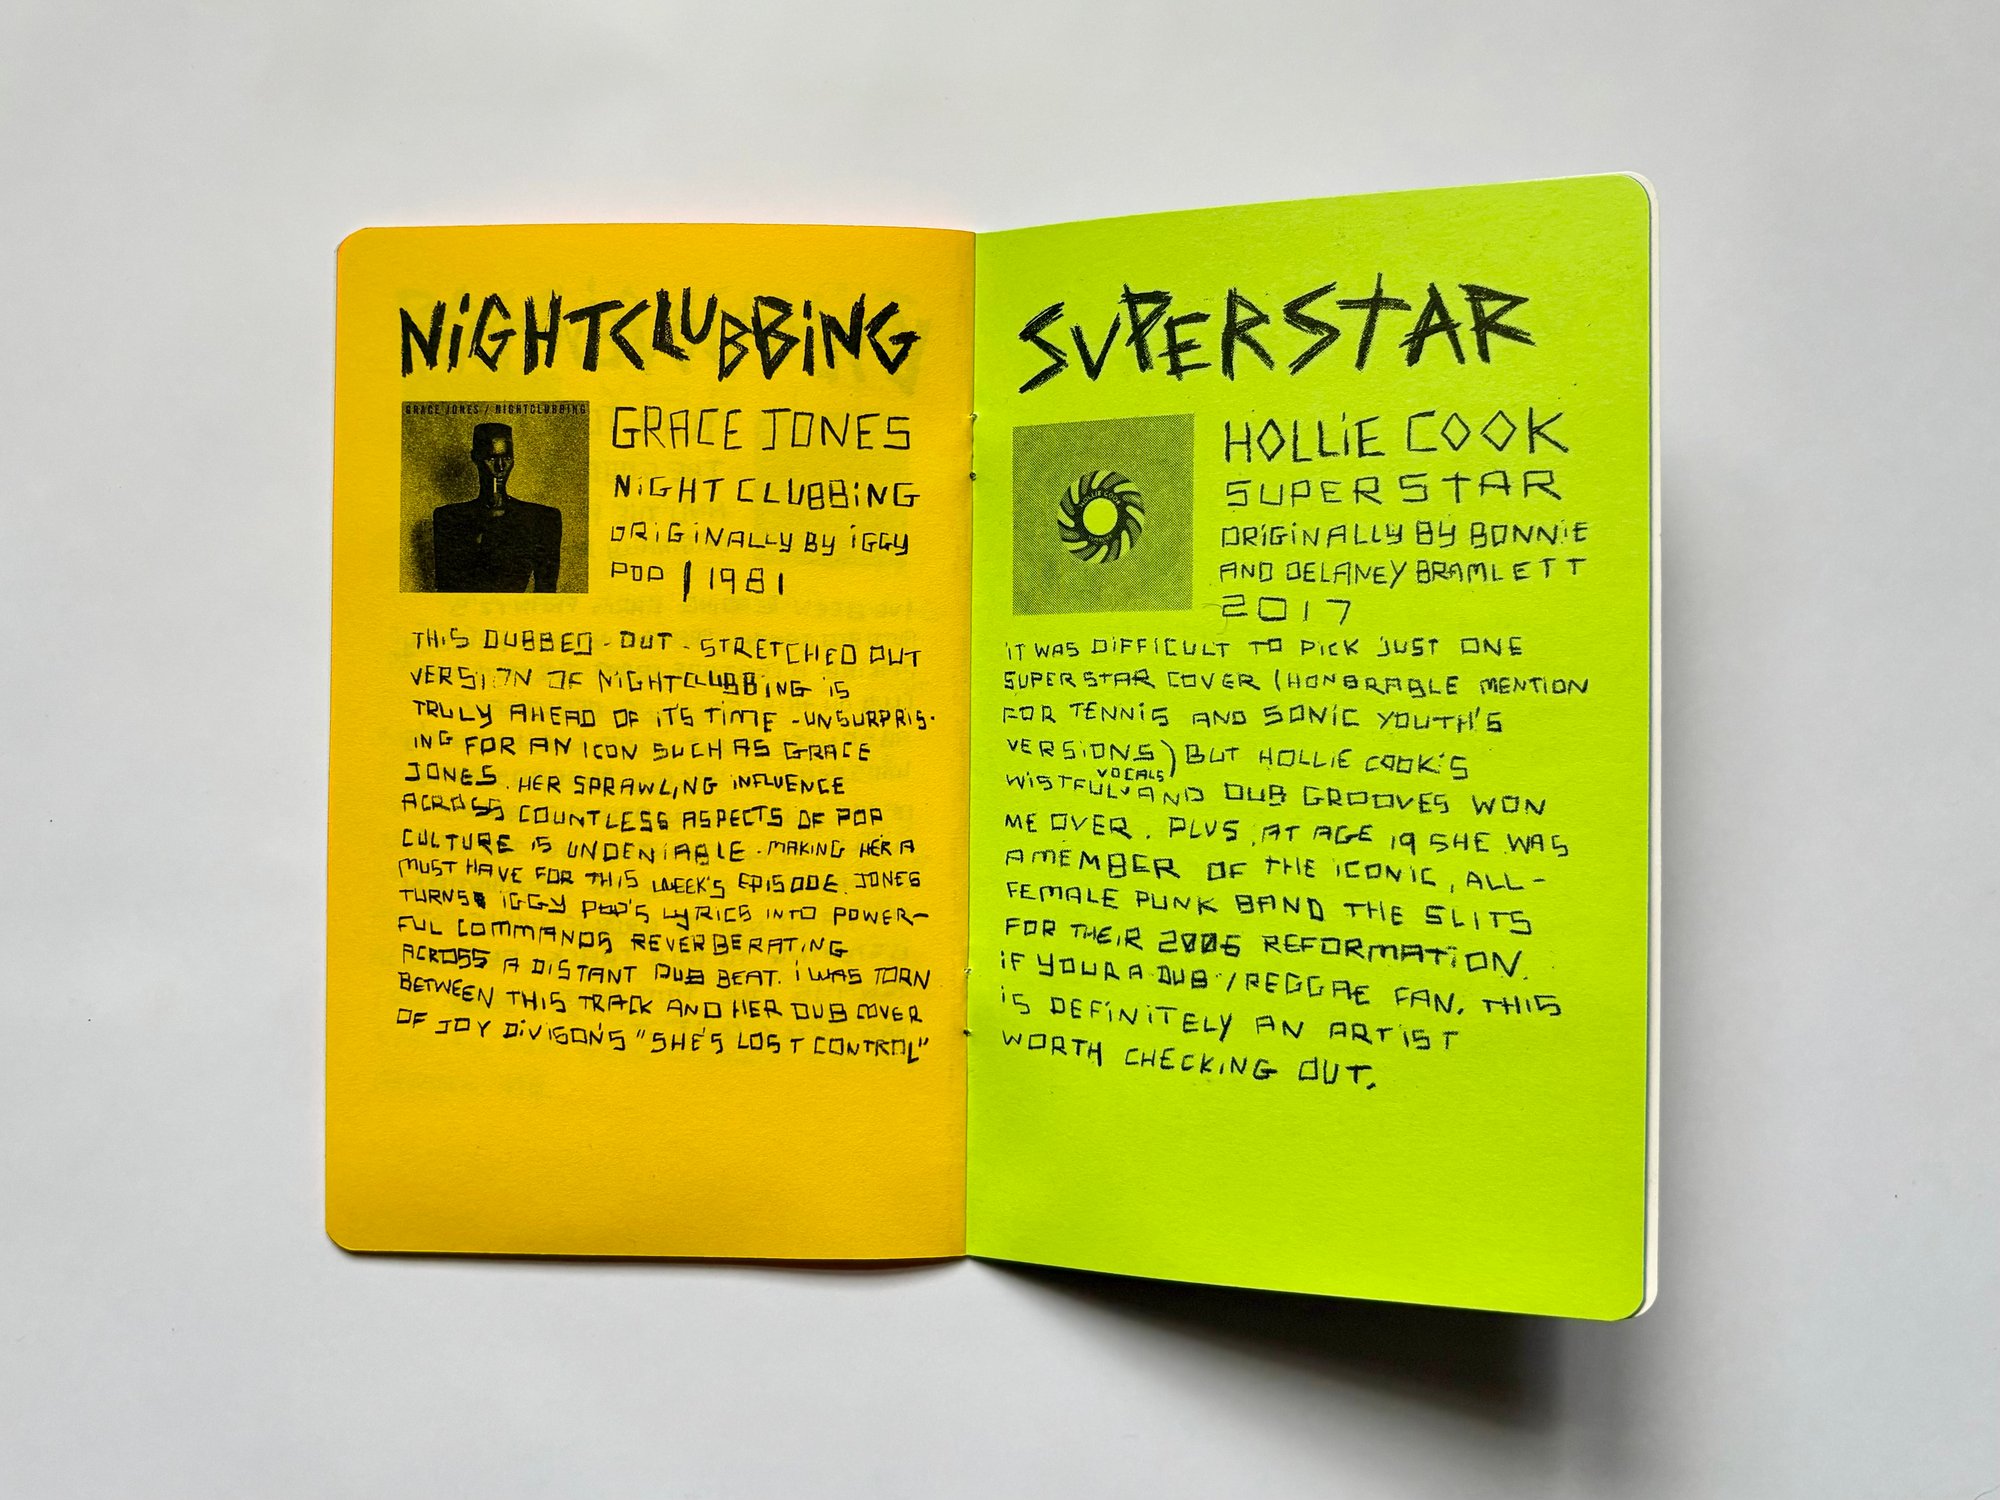 NiGHTCLUBBiNG
GRACE JONES / NIGHTCLUBBING
GRACE JONES
NiGHTCLUBBiNG
ORiGiNALLY BY iGGY
POP | 1981
THiS DUBBED-OUT-STRETCHED OUT
VERSION OF NiGHTCLUBBiNG iS
TRULY AHEAD OF iTS TiME -UNSURPRiS-
iNG FOR AN iCON SUCH AS GRACE
JONES. HER SPRAWLiNG iNFLUENCE
ACROSS COUNTLESS ASPECTS OF POP
CULTURE iS UNDENiABLE - MAKiNG HER A
MUST HAVE FOR THiS WEEK'S EPiSODE. JONES
TURNS iGGY POP'S LYRiCS iNTO POWER-
FUL COMMANDS REVERBERATiNG
ACROSS A DiSTANT DUB BEAT. i WAS TORN
BETWEEN THiS TRACK AND HER DUB COVER
OF JOY DiViSON'S "SHE'S LOST CONTROL"
SUPERSTAR
HOLLIE COOK
HOLLiE COOK
SUPERSTAR
ORiGiNALLY BY BONNiE
AND DELANEY BRAMLETT
2017
iT WAS DiFFiCULT TO PiCK JUST ONE
SUPERSTAR COVER (HONORABLE MENTiON
FOR TENNiS AND SONiC YOUTH'S
VERSiONS) BUT HOLLiE COOK'S
WiSTFUL VOCALS AND DUB GROOVES WON
ME OVER. PLUS, AT AGE 19 SHE WAS
A MEMBER OF THE iCONiC, ALL-
FEMALE PUNK BAND THE SLiTS
FOR THEiR 2006 REFORMATiON.
iF YOUR A DUB/REGGAE FAN, THiS
iS DEFiNiTELY AN ARTiST
WORTH CHECKiNG OUT.